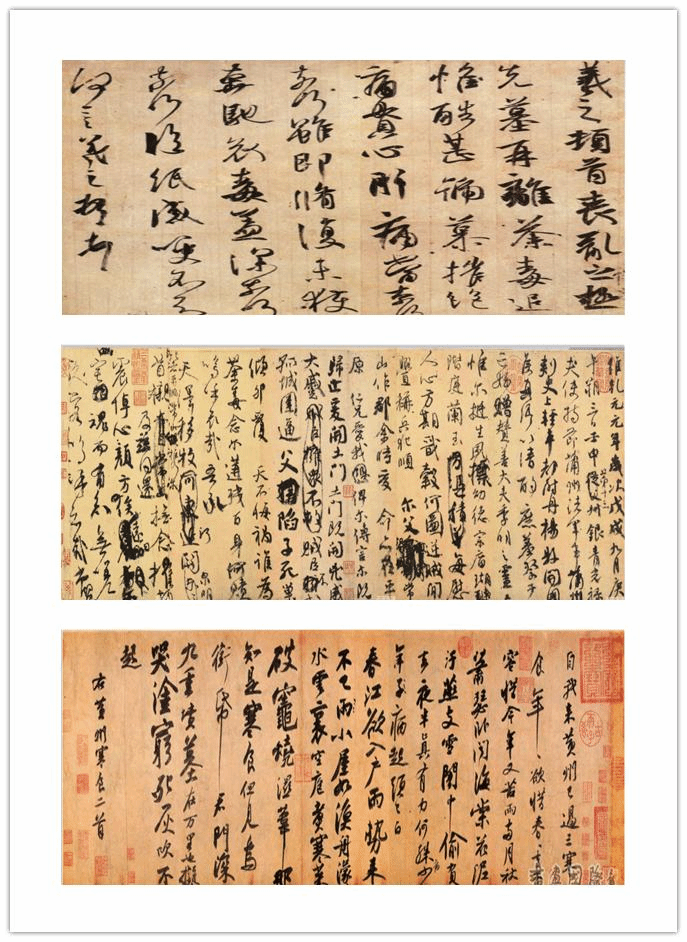 羲之頓首喪亂之極
先墓再離荼毒追
惟酷甚號慕摧絕
痛貫心肝痛當奈何
奈何雖即脩復未獲
奔馳哀毒益深奈何
奈何臨紙感哽不知
何言羲之頓首
維乾元元年歲次戊戌九月庚
午朔三日壬申從父銀青光祿
夫使持節蒲州諸軍事蒲州
刺史上輕車都尉丹楊縣開國
侯真卿以清酌庶羞祭于
亡姪贈贊善大夫季明之靈
惟爾挺生夙標幼德宗廟瑚璉
階庭蘭玉每慰
人心方期戩穀何圖逆賊間
釁稱兵犯順爾父
山作郡余時受命亦在平
原仁兄愛我俾爾傳言爾既
歸止爰開土門土門既開凶威
大蹙賊臣不救
孤城圍逼父陷子死巢
傾卵覆天不悔禍誰為
荼毒念爾遘殘百身何贖
嗚呼哀哉吾承
天澤移牧河關泉明
首櫬及茲同還撫念摧切
震悼心顏方俟
魂而有知無嗟
久客嗚呼哀哉尚饗
自我來黃州已過三寒
食年年欲惜春春去不
容惜今年又苦雨兩月秋
蕭瑟臥聞海棠花泥
汙燕支雪闇中偷負
去夜半真有力何殊少
年子病起頭已白
春江欲入戶雨勢來
不已雨小屋如漁舟濛濛
水雲裏空庖煮寒菜
破竈燒濕葦那
知是寒食但見烏
銜帋君門深
九重墳墓在万里也擬
哭塗窮死灰吹不
起
右黃州寒食二首